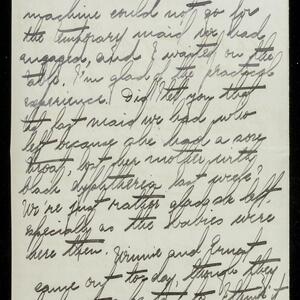 machine could not go for
the temporary maid we had
engaged, and I waited on the
table. I'm glad of the practical
experience! Did I tell you that
the last maid we had who
left because she had a sore
throat, lost her mother with
black diphtheria last week?
We're just rather glad she left,
especially as the babies were
here then. Winnie and Ernest
came out to-day, though they